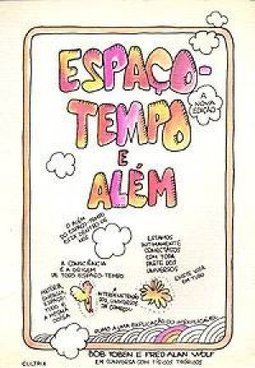 ESPAÇO-
TEMPO
E
ALÉM
A
NOVA
EDIÇÃO
O ALÉM
DO ESPAÇO-TEMPO
ESTÁ DENTRO DE
NÓS
A CONSCIÊNCIA
É A ORIGEM
DE TODO ESPAÇO-TEMPO
ESTAMOS
INTIMAMENTE
CONECTADOS
COM TODA
PARTE DOS
UNIVERSOS
MATÉRIA,
ENERGIA,
ESPAÇO-
TUDO É
A MESMA
COISA
EXISTE VIDA
EM TUDO
RUMO A UMA EXPLICAÇÃO DO INEXPLICÁVEL
BOB TOBEN E FRED ALAN WOLF
EM CONVERSA COM FÍSICOS TEÓRICOS
CULTRIX